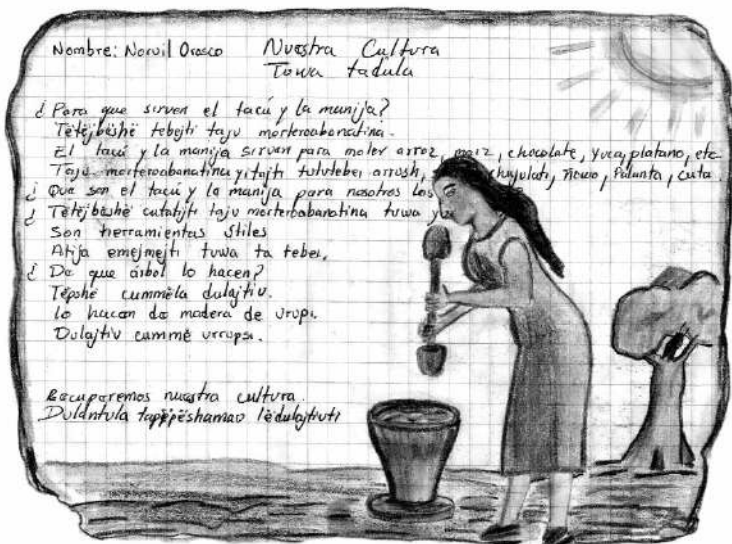 Nombre: Norvil Orosco
Nuestra Cultura
Tuwa tadula
¿ Para que sirven el tacú y la manija?
Tëtëjbëshë tebejti taju morteroabanatina.
El tacú y la manija sirven para moler arroz, maiz, chocolate, yuca, platano, etc
Taju morteroabanatina yitajti tulutebei arrush, chujulati, Ñowo, Palanta, cuta.
¿ Que son el tacú y la manija para nosotros los
¿ Tëtëjbëshë cutatijti taju morteroabanatina tuwa y
Son herramientas útiles
Atija emejmejti tuwa ta tebei.
¿ De que árbol lo hacen?
Tëpshë cummëla dulajtiu.
lo hacen de madera de urupi.
Dulajtiu cummë urrupsi.
Recuperemos nuestra cultura.
Dulantula